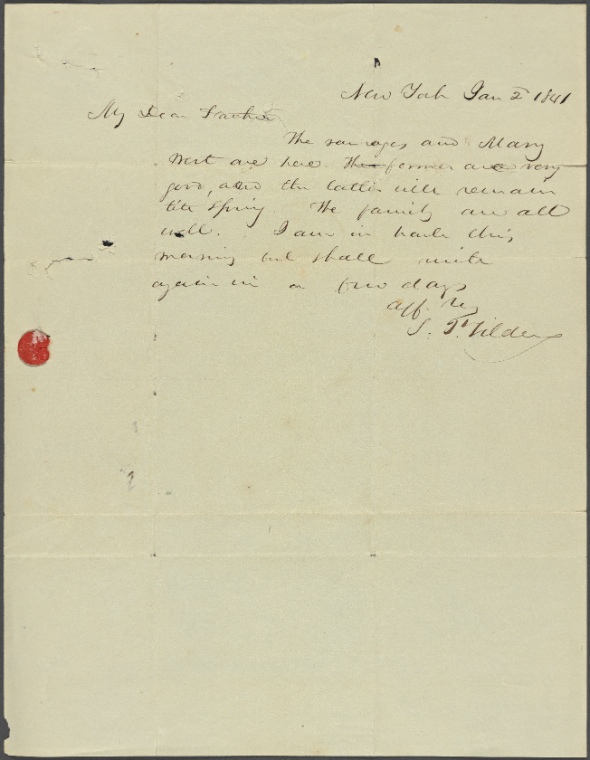 New York Jan 2 1841
My Dear Father
The sausages and Mary
West are here. The former are very
good, and the latter will remain
till Spring. The family are all
well. I am in haste this
morning but shall write
again in a few days
Aff. ly
S. J. Tilden